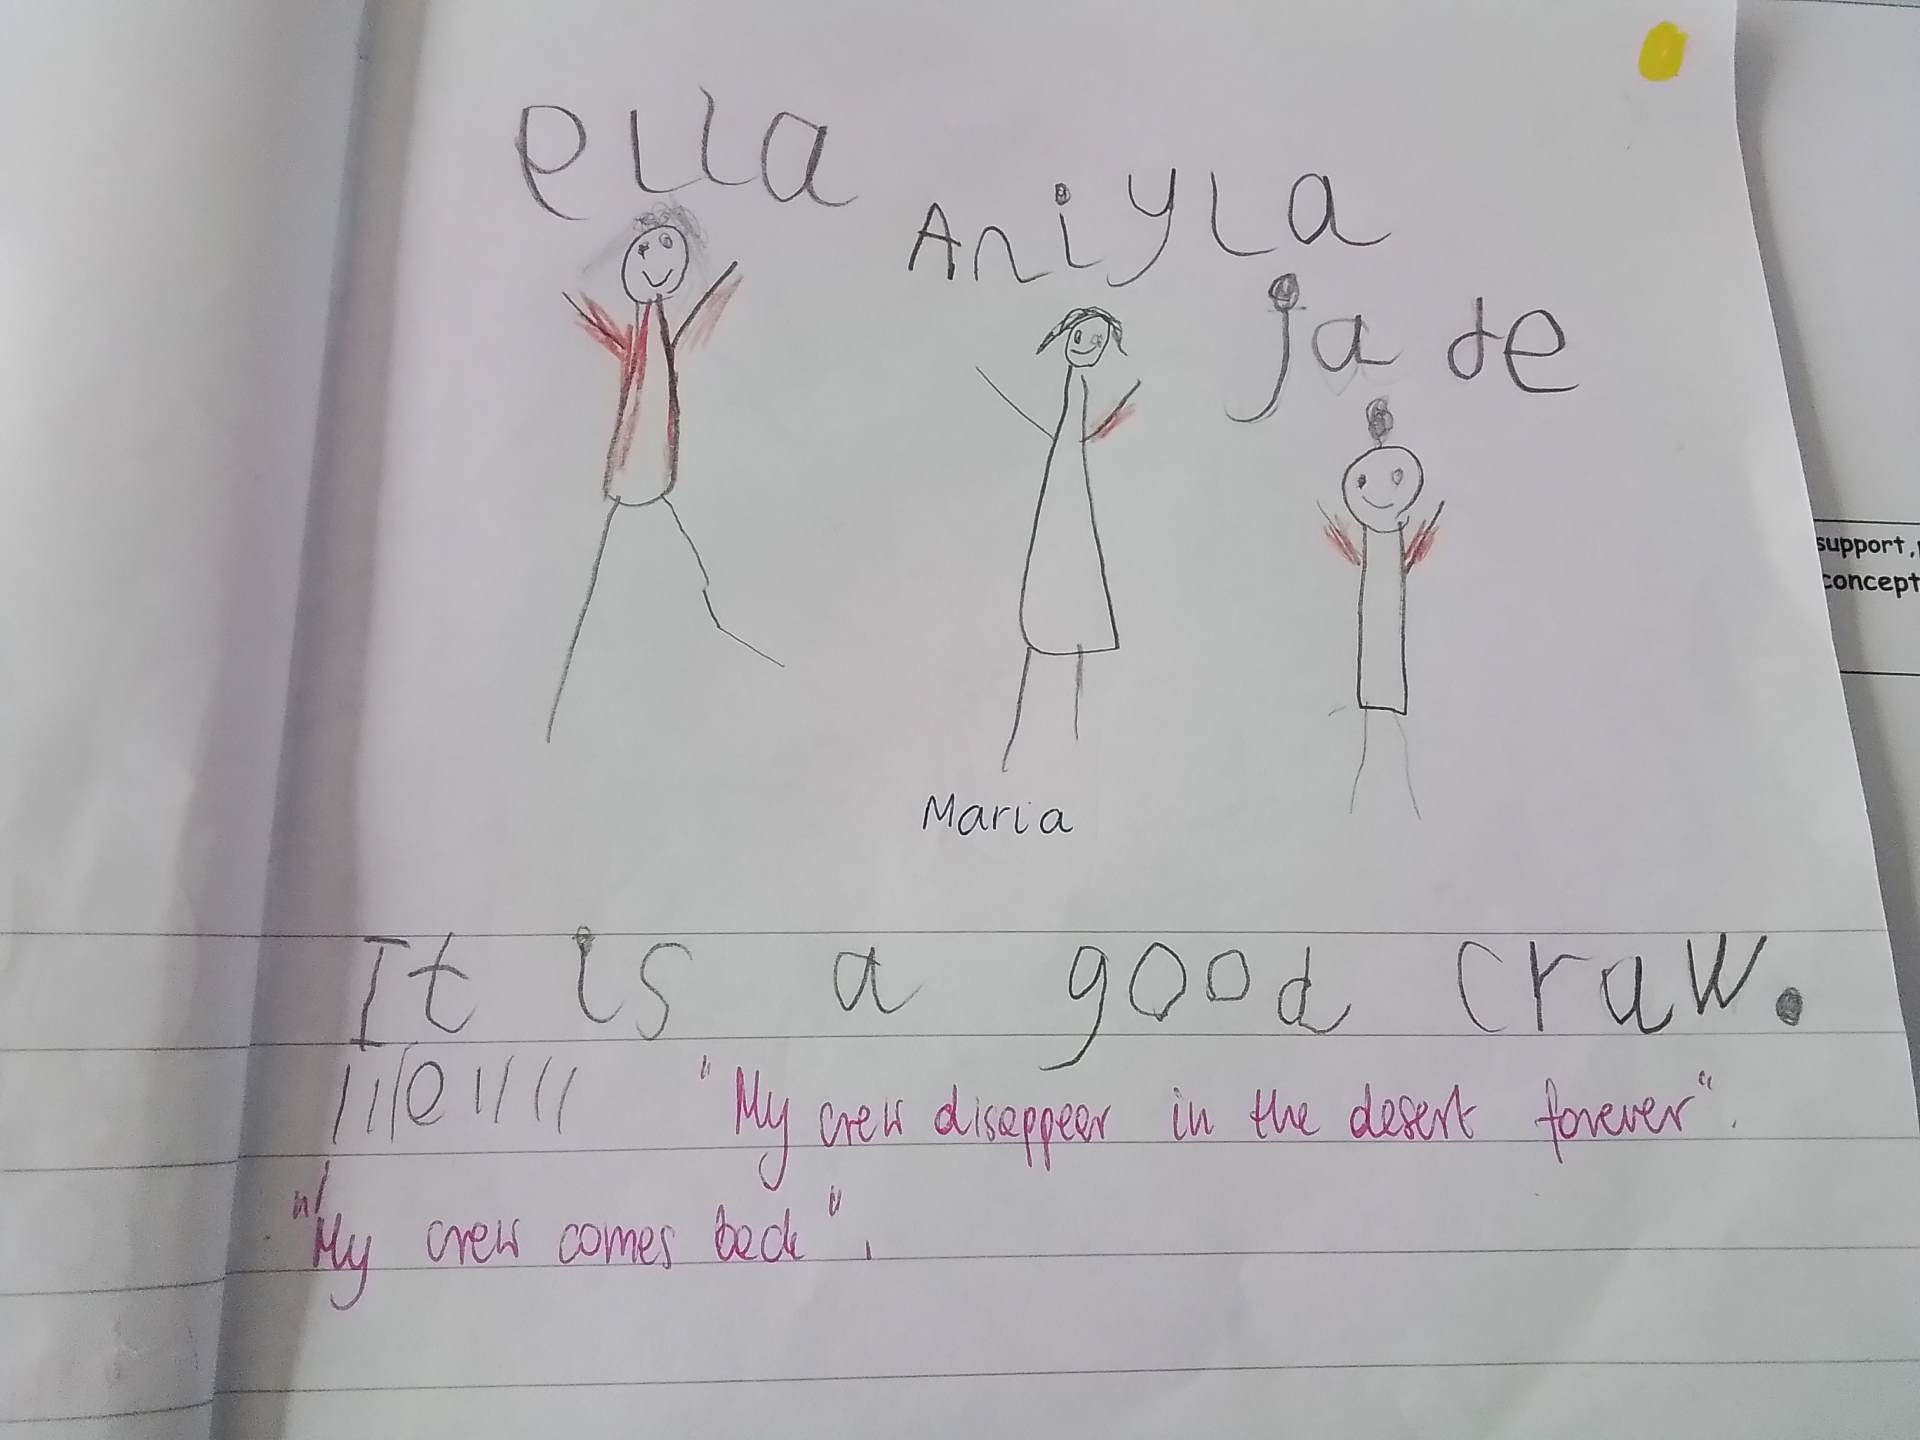 ella
Aniyla
jade
Maria
It is a good craw.
"My crew disappear in the desert forever".
"My crew comes back".
support,
concept